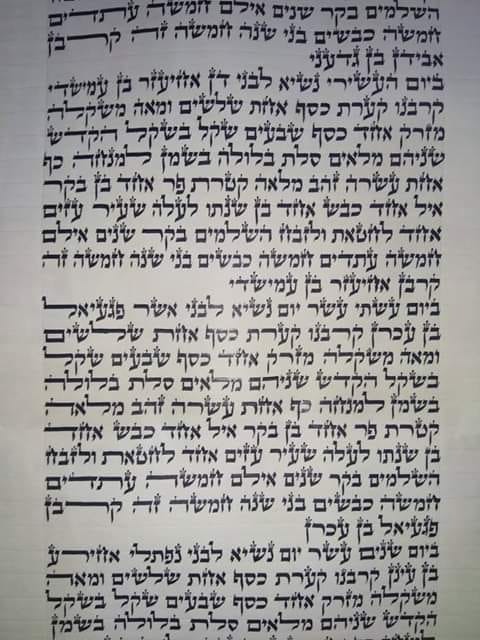 השלמים בקר שנים אילם חמשה עתדים
חמשה כבשים בני שנה חמשה זה קרבן
אבידן בן גדעני
ביום העשירי נשיא לבני דן אחיעזר בן עמישדי
קרבנו קערת כסף אחת שלשים ומאה משקלה
מזרק אחד כסף שבעים שקל בשקל הקדש
שניהם מלאים סלת בלולה בשמן למנחה כף
אחת עשרה זהב מלאה קטרת פר אחד בן בקר
איל אחד כבש אחד בן שנתו לעלה שעיר עזים
אחד לחטאת ולזבח השלמים בקר שנים אילם
חמשה עתדים חמשה כבשים בני שנה חמשה זה
קרבן אחיעזר בן עמישדי
ביום עשתי עשר יום נשיא לבני אשר פגעיאל
בן עכרן קרבנו קערת כסף אחת שלשים
ומאה משקלה מזרק אחד כסף שבעים שקל
בשקל הקדש שניהם מלאים סלת בלולה
בשמן למנחה כף אחת עשרה זהב מלאה
קטרת פר אחד בן בקר איל אחד כבש אחד
בן שנתו לעלה שעיר עזים אחד לחטאת ולזבח
השלמים בקר שנים אילם חמשה עתדים
חמשה כבשים בני שנה חמשה זה קרבן
פגעיאל בן עכרן
ביום שנים עשר יום נשיא לבני נפתלי אחירע
בן עינן קרבנו קערת כסף אחת שלשים ומאה
משקלה מזרק אחד כסף שבעים שקל בשקל
הקדש שניהם מלאים סלת בלולה בשמן